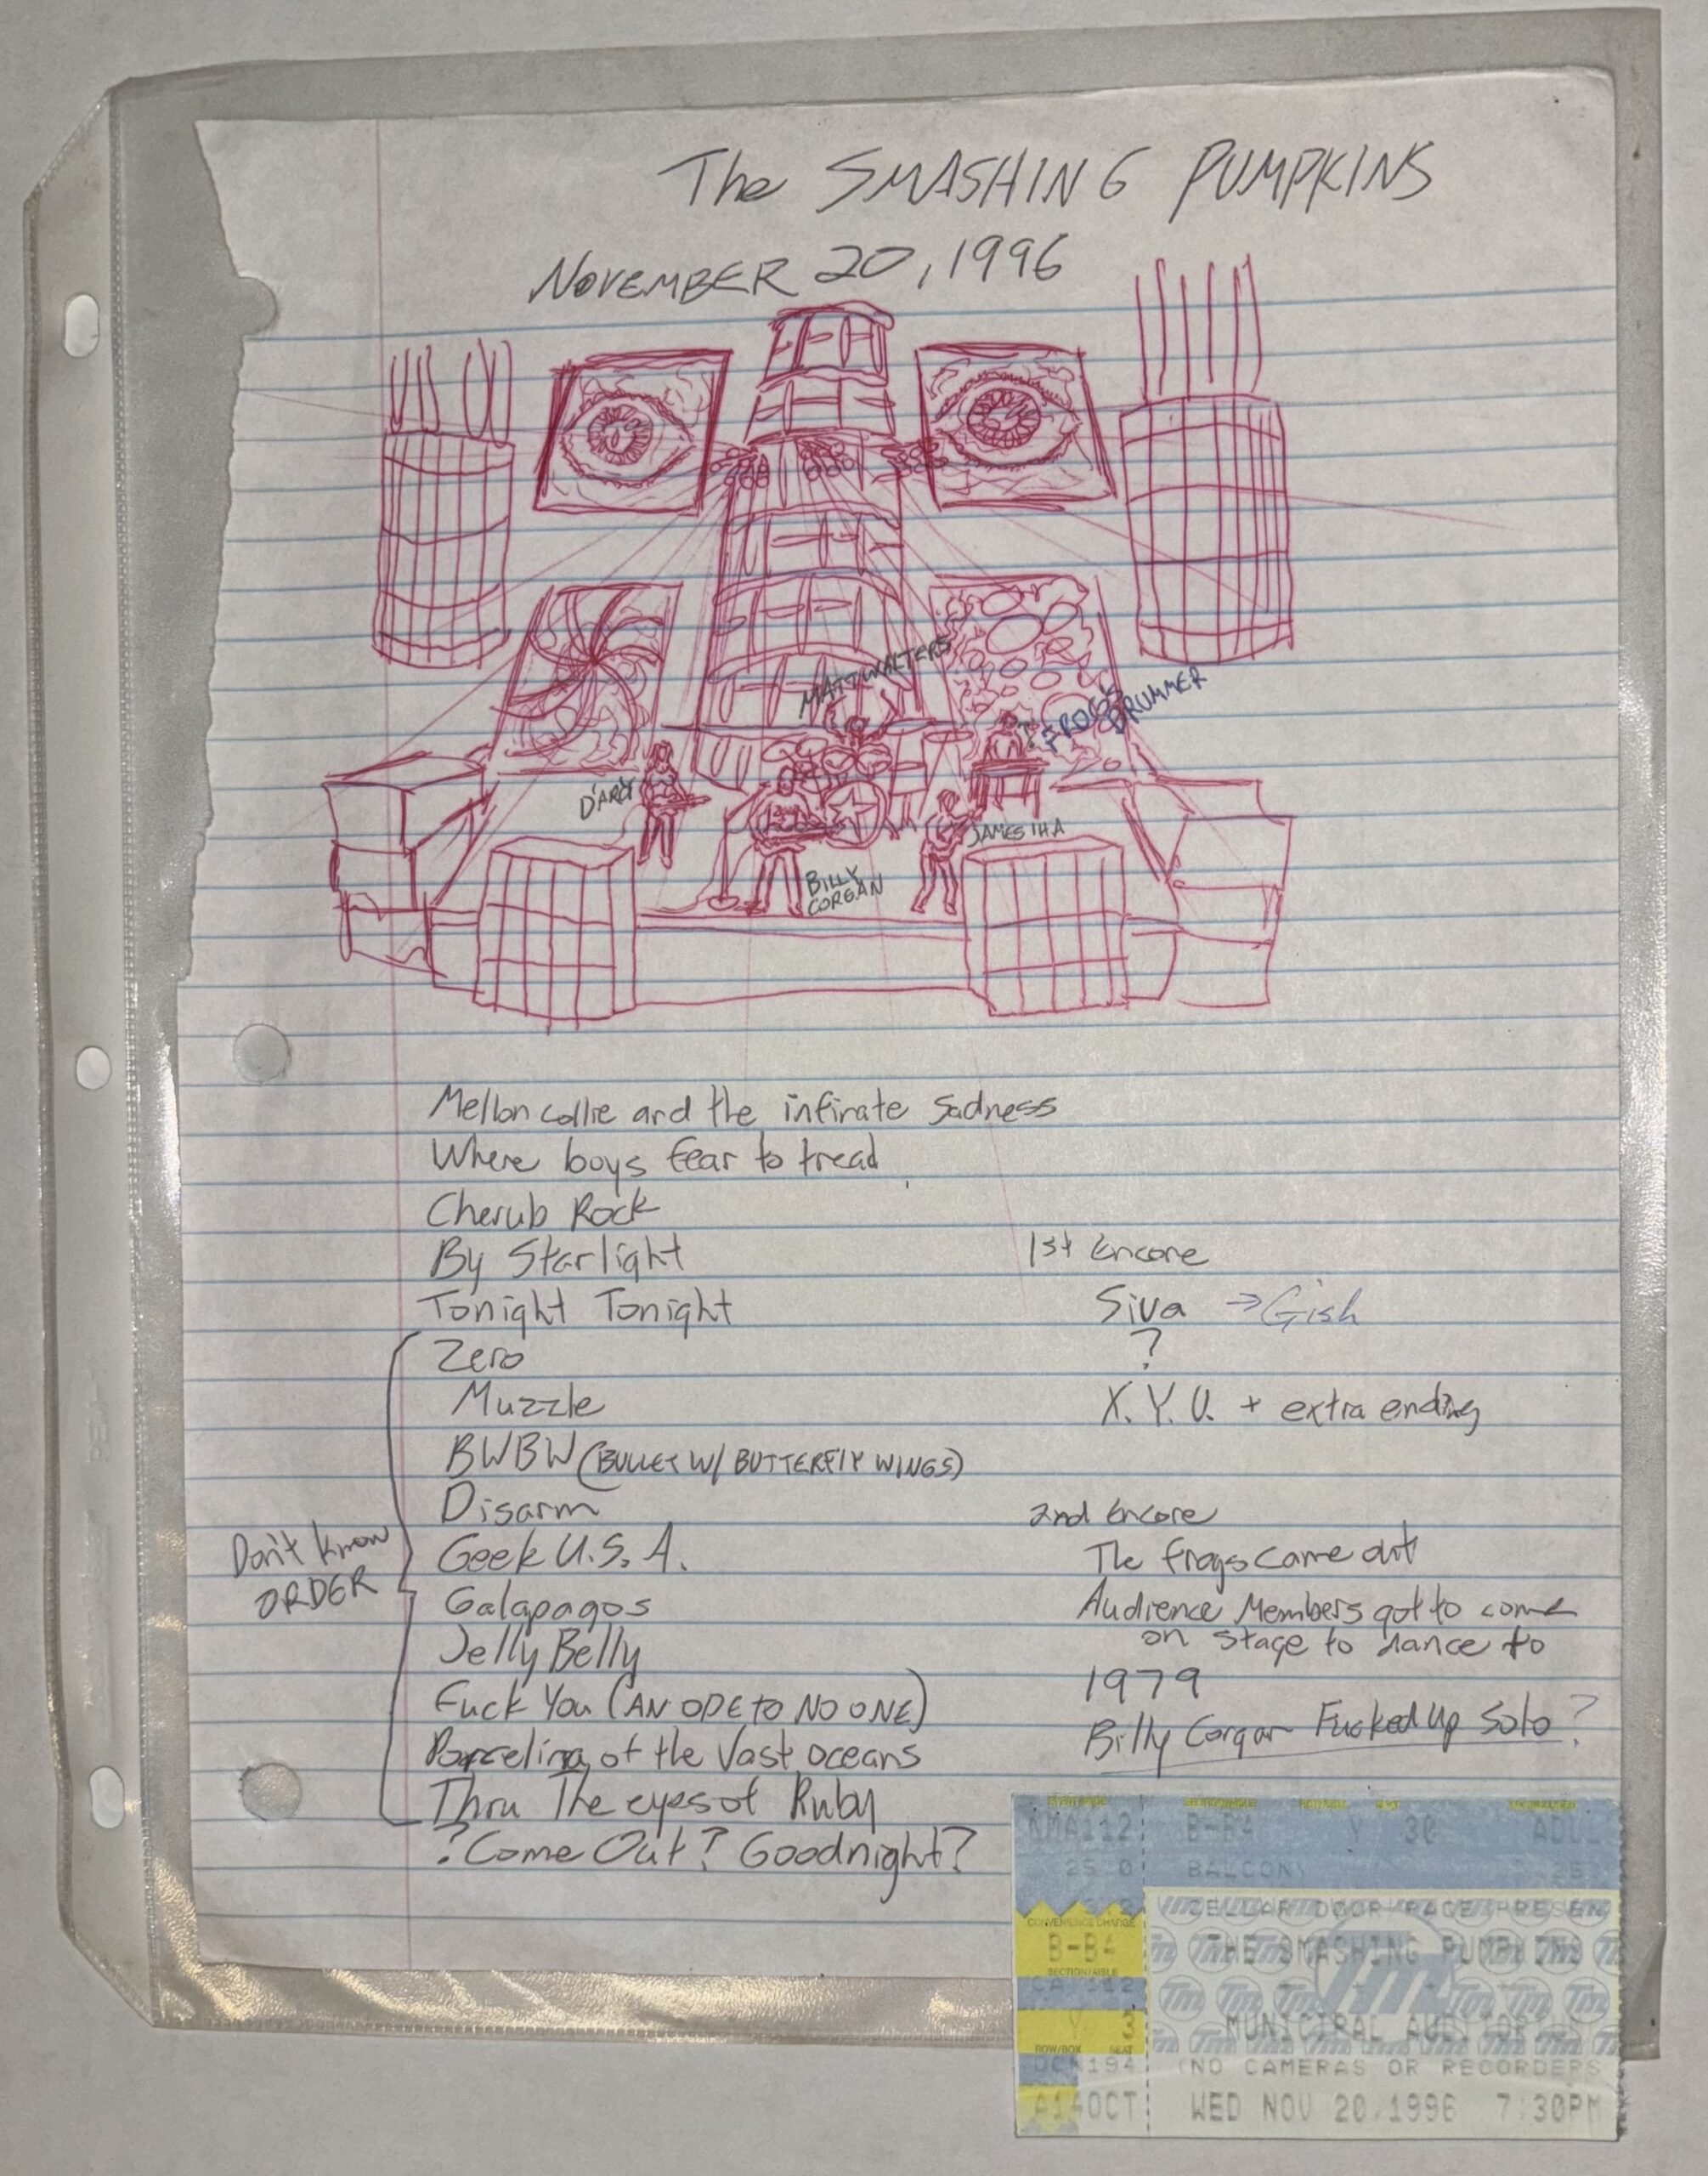 The SMASHING PUMPKINS
NOVEMBER 20, 1996
MATT WALTERS
FROGS
DRUMMER
D'ARCY
JAMES IHA
BILLY
CORGAN
Mellon collie and the infinate sadness
Where boys fear to tread
Cherub Rock
By Starlight
Tonight Tonight
Zero
Muzzle
BWBW (BULLET W/ BUTTERFLY WINGS)
Disarm
Don't know
ORDER
Geek U.S.A.
Galapagos
Jelly Belly
Fuck You (AN ODE TO NO ONE)
Porcelina of the Vast oceans
Thru The eyes of Ruby
? Come Out? Goodnight?
1st Encore
Siva → Gish
?
X.Y.U. + extra ending
2nd Encore
The frogs came out
Audience Members got to come
on stage to dance to
1979
Billy Corgan Fucked Up Solo?
NMA112 B-BA Y 30 ADUL
BALCONY
CONVENIENCE CHARGE
CELLAR DOOR PRESEN
B-BA THE SMASHING PUMPKINS
SECTION/AISLE
Y 3 MUNICIPAL AUDITOR
ROW/BOX SEAT
OCN194 (NO CAMERAS OR RECORDERS
A14OCT WED NOV 20,1996 7:30PM